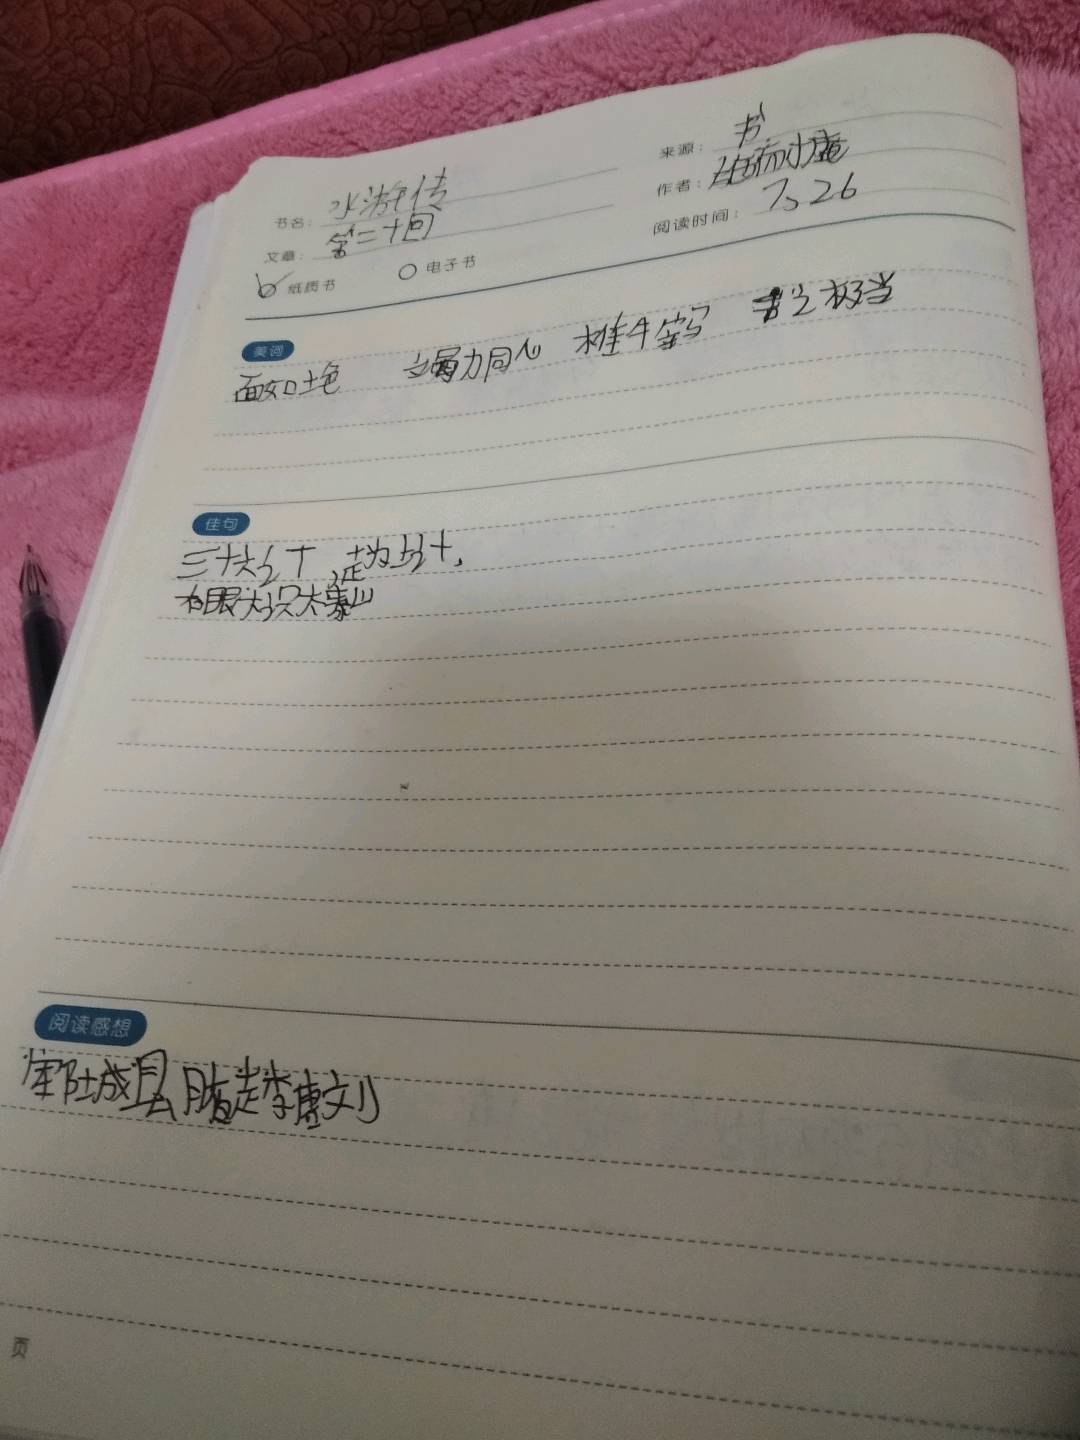 来源：书
书名：水浒传
作者：施耐庵
文章：第二十回
阅读时间：7.26
纸质书 电子书
美词
面如土色 竭力同心 椎牛宰马
佳句
三十六计 走为上计，
有眼不识太山
阅读感想
页